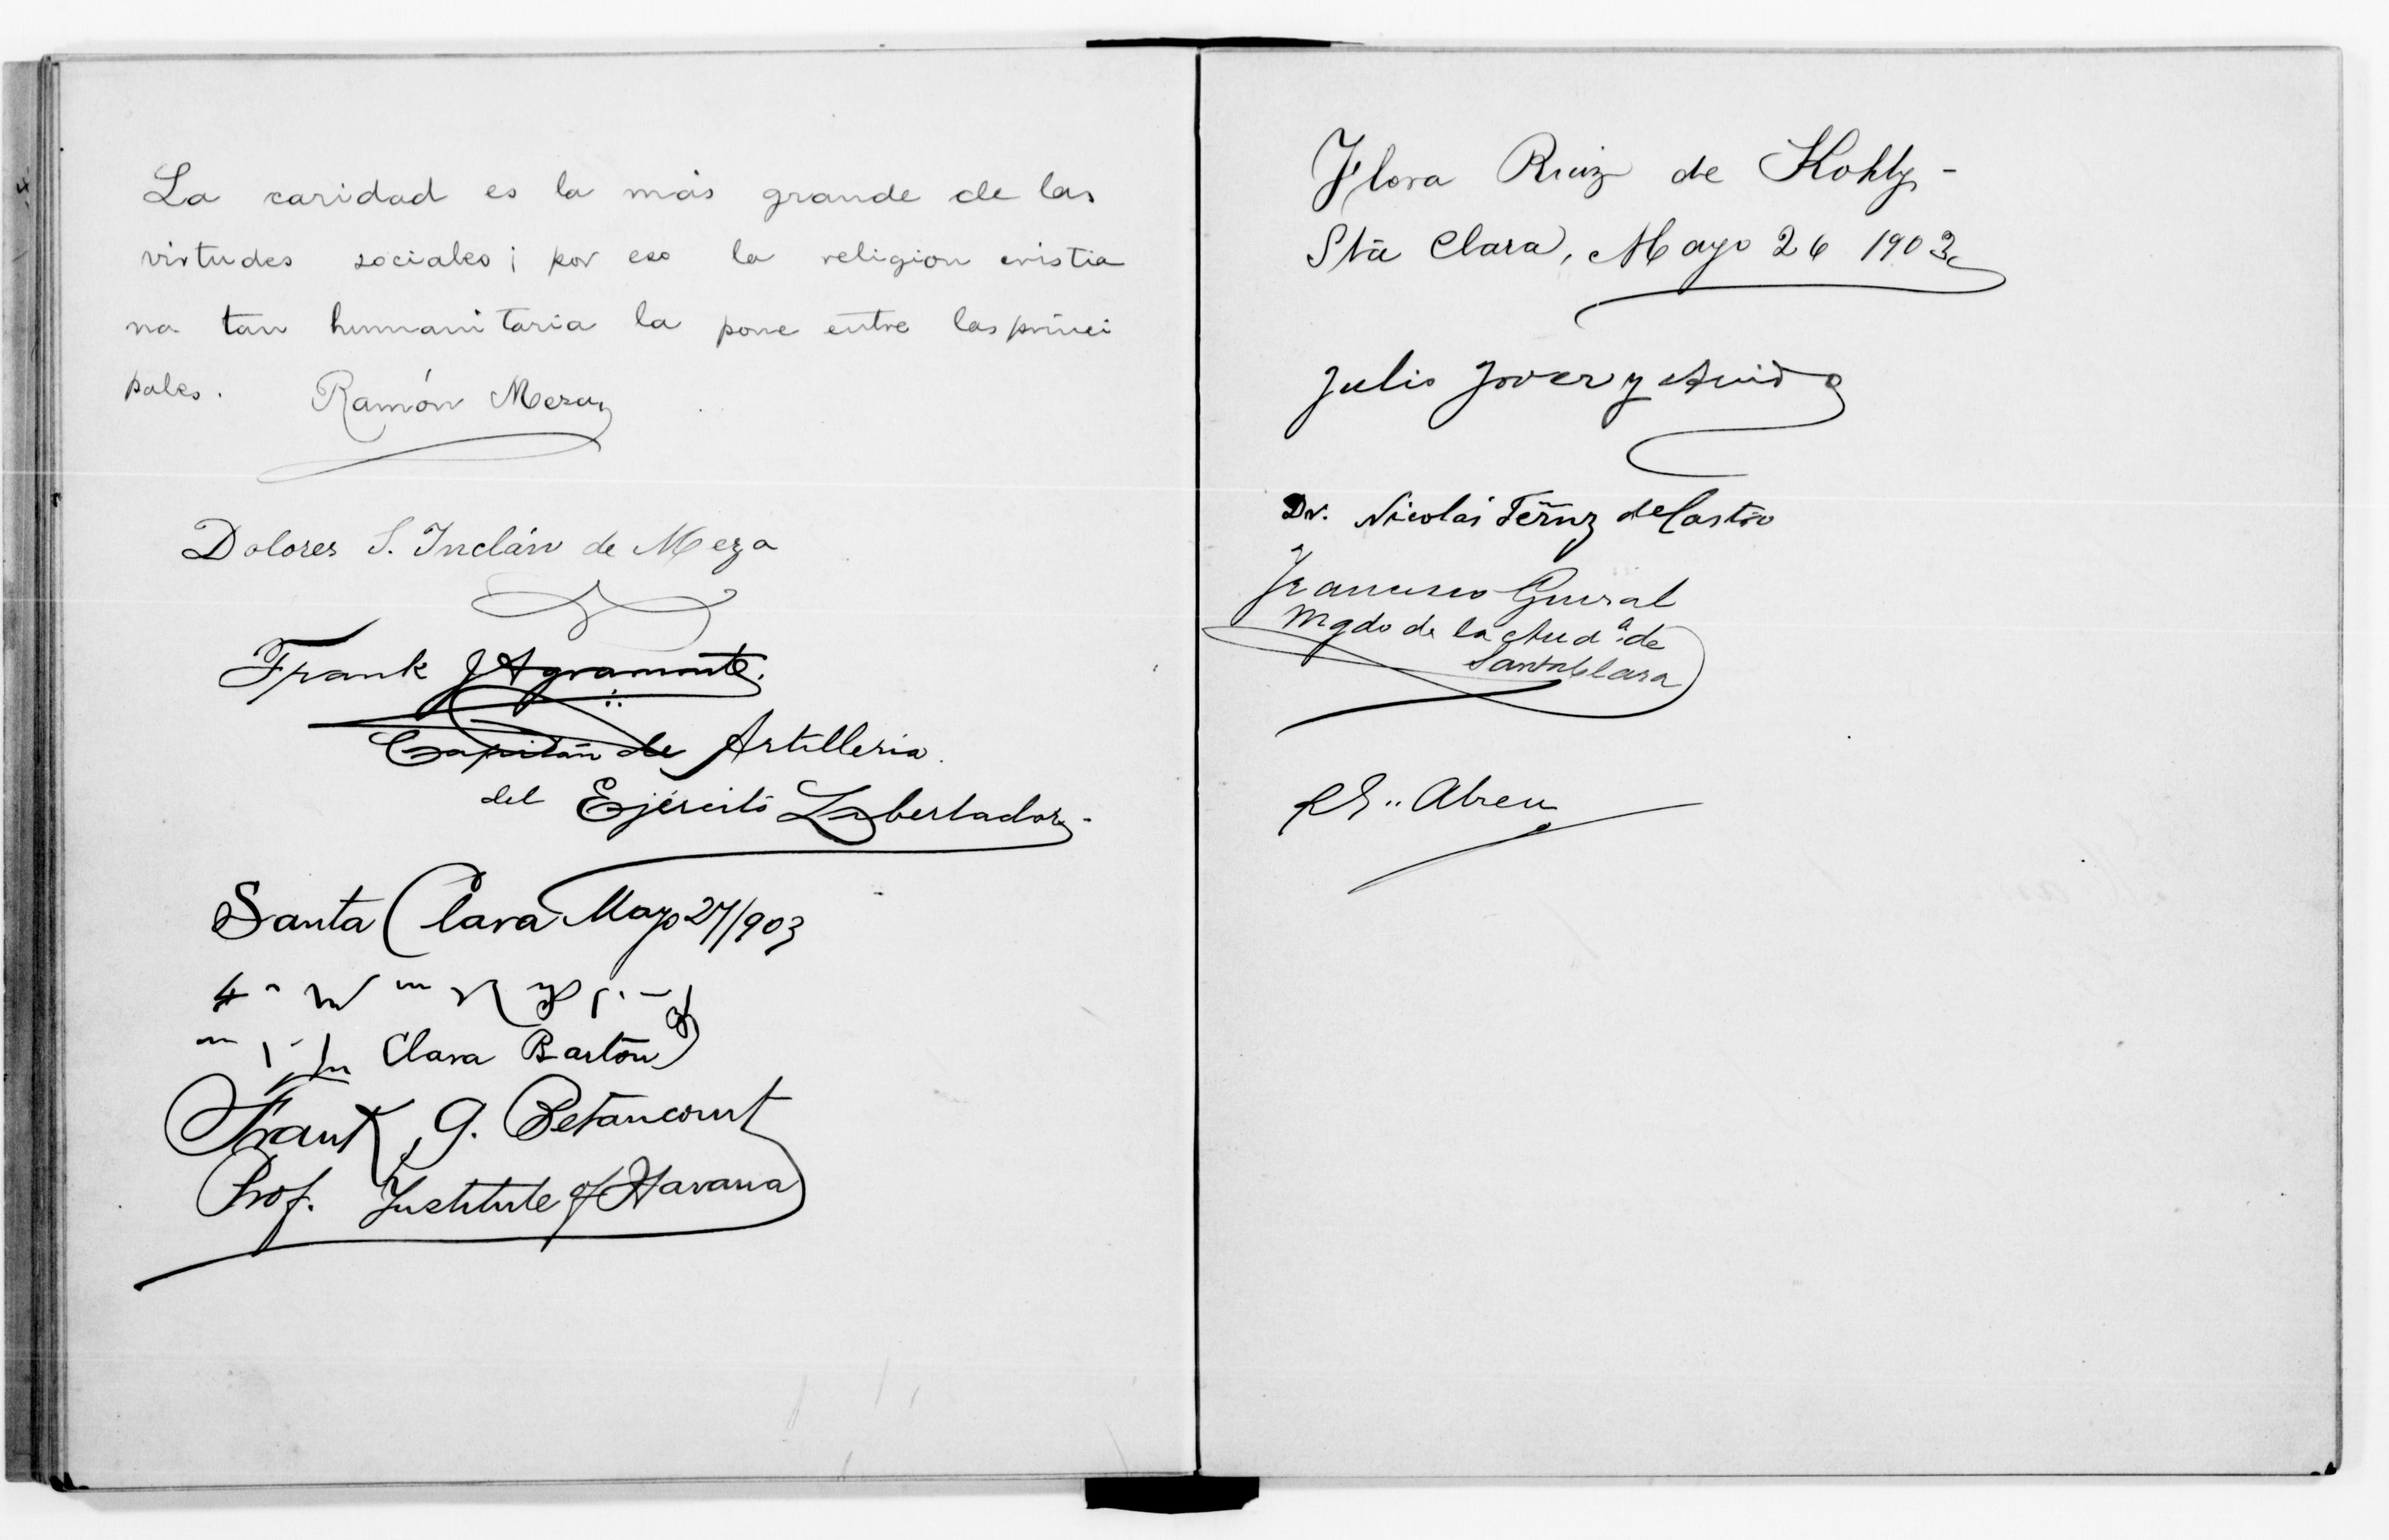 La caridad es la más grande de las
virtudes sociales; por eso la religion cristia
na tan humanitaria la pone entre las princi
pales. Ramón Meza
Dolores S. Inclán de Meza
Frank J Agramonte.
Capitán de Artilleria.
del Ejército Libertador-
Santa Clara Mayo 27/903
Clara Barton
Frank, G. Betancourt
Prof. Institute of Havana
Flora Ruiz de Kohly-
Sta Clara, Mayo 26 1903
Julio Jover y
Dr. Nicolás Fernz de Castro
Francisco Guiral
Mgdo de la Auda. de
Santa Clara
Abreu